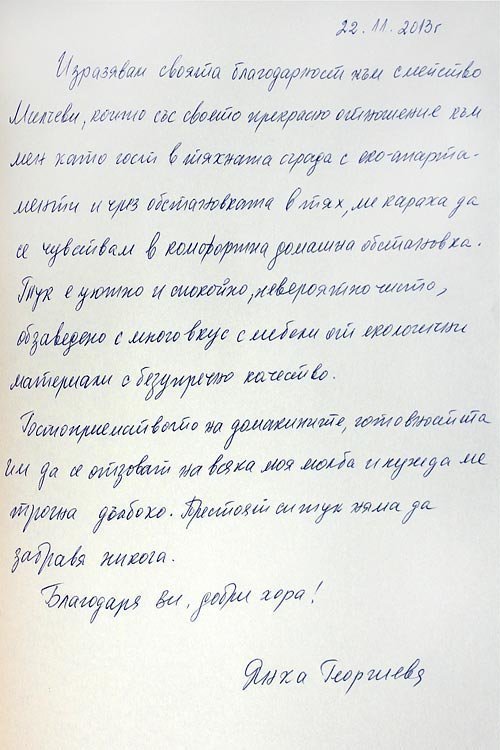 22.11.2013г
Изразявам своята благодарност към семейство
Милчеви, които със своето прекрасно отношение към
мен като гост в тяхната сграда с еко-апарта-
менти и чрез обстановката в тях, ме караха да
се чувствам в комфортна домашна обстановка.
Тук е уютно и спокойно, невероятно чисто,
обзаведено с много вкус с мебели от екологични
материали с безупречно качество.
Гостоприемството на домакините, готовността
им да се отзоват на всяка моя молба и нужда ме
трогна дълбоко. Престоят си тук няма да
забравя никога.
Благодаря Ви, добри хора!
Янка Георгиева